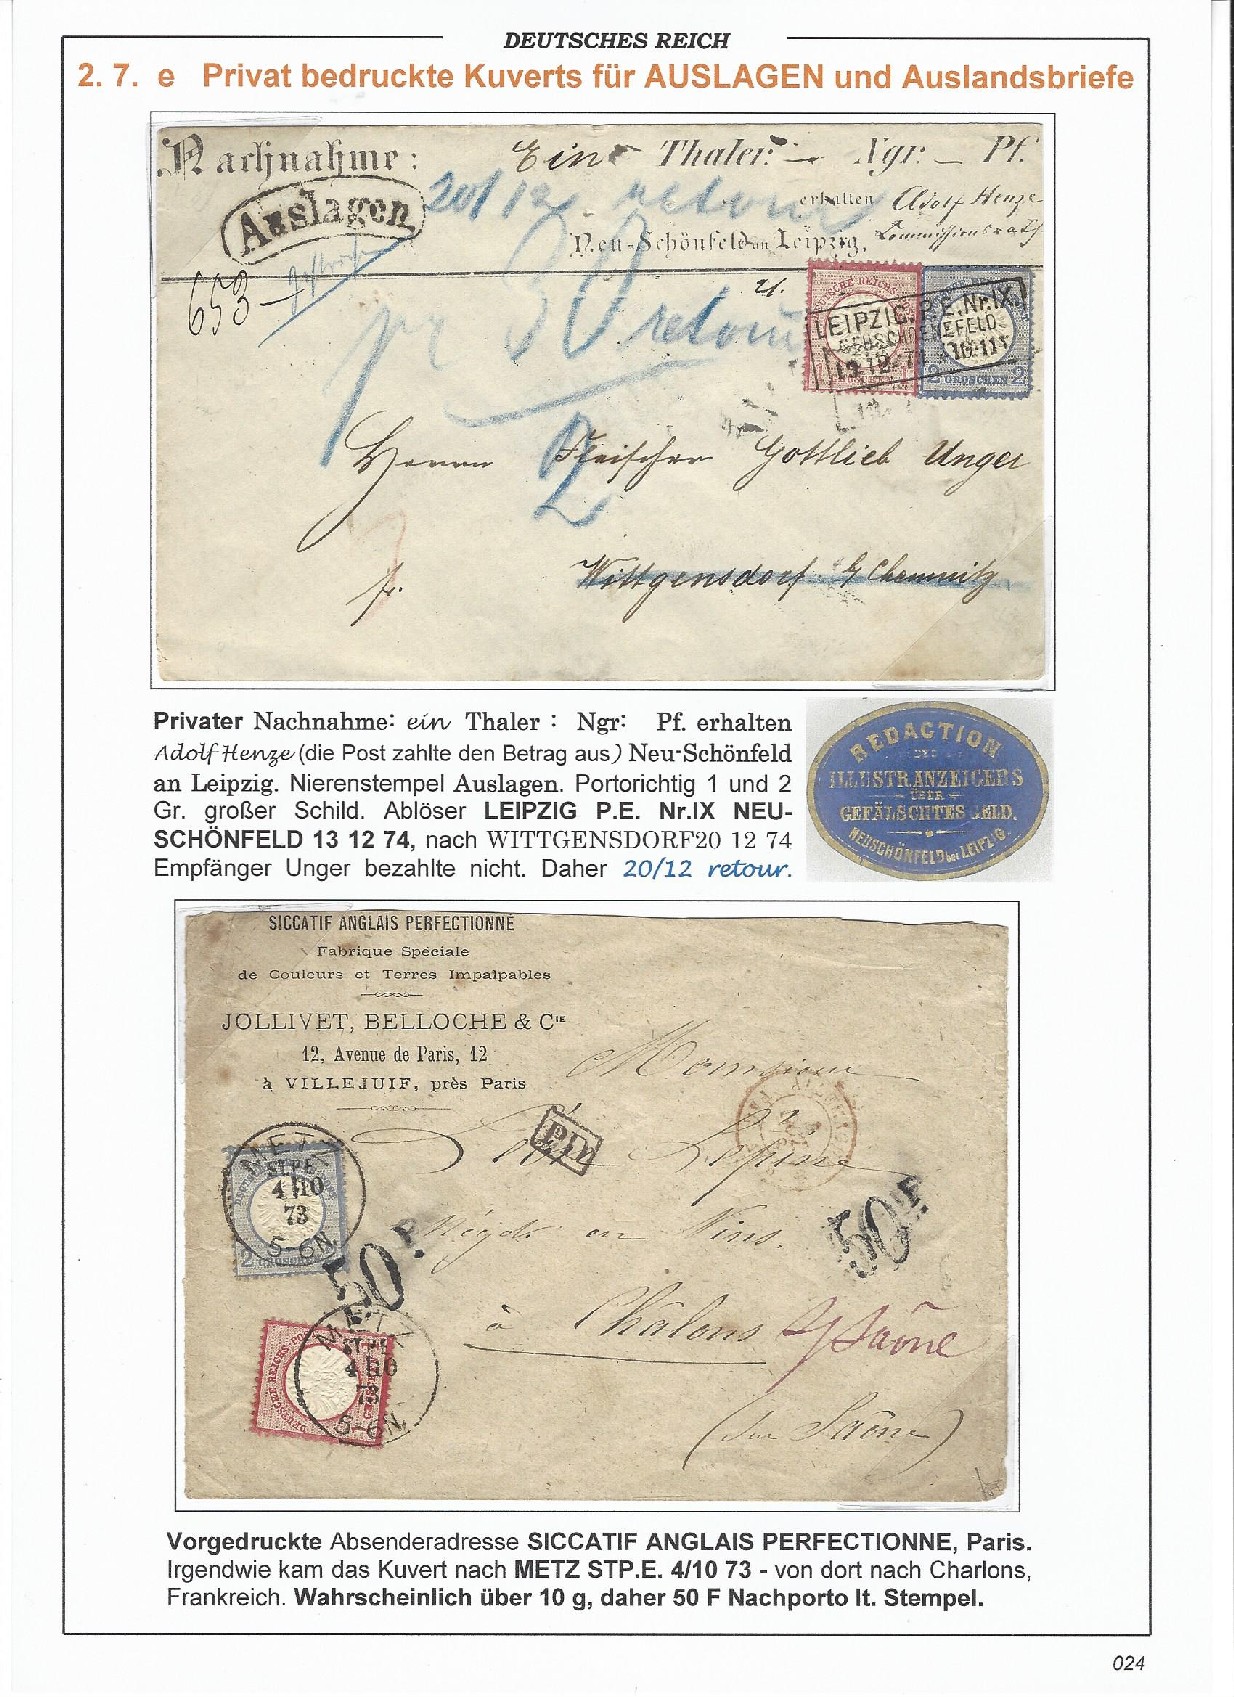 DEUTSCHES REICH
2. 7. e Privat bedruckte Kuverts für AUSLAGEN und Auslandsbriefe
Nachnahme: Ein Thaler: — Ngr: — Pf.
Auslagen
20/12 retour
erhalten Adolf Henze
Neu-Schönfeld an Leipzig,
653
retour
LEIPZIG. P.E. Nr. IX.
NEUSCHOENEFELD
2 GROSCHEN 2
2
Herrn Fleischer Gottlieb Unger
Wittgensdorf b/ Chemnitz
fr.
Privater Nachnahme: ein Thaler : Ngr: Pf. erhalten
Adolf Henze (die Post zahlte den Betrag aus) Neu-Schönfeld
an Leipzig. Nierenstempel Auslagen. Portorichtig 1 und 2
Gr. großer Schild. Ablöser LEIPZIG P.E. Nr.IX NEU-
SCHÖNFELD 13 12 74, nach WITTGENSDORF20 12 74
Empfänger Unger bezahlte nicht. Daher 20/12 retour.
REDACTION
DES
ILLUSTR.ANZEIGERS
ÜBER
GEFÄLSCHTES GELD.
NEUSCHÖNEFELD bei LEIPZIG.
SICCATIF ANGLAIS PERFECTIONNÉ
Fabrique Spéciale
de Couleurs et Terres Impalpables
JOLLIVET, BELLOCHE & Cie
12, Avenue de Paris, 12
à VILLEJUIF, près Paris
Monsieur
PD
Lépine
METZ
STP.E.
4 10
73
5-6N.
50 F.
50 F.
en Vins
à Châlons s/ Saône
METZ
4 10
73
5-6N.
(sur Saône)
Vorgedruckte Absenderadresse SICCATIF ANGLAIS PERFECTIONNE, Paris.
Irgendwie kam das Kuvert nach METZ STP.E. 4/10 73 - von dort nach Charlons,
Frankreich. Wahrscheinlich über 10 g, daher 50 F Nachporto lt. Stempel.
024